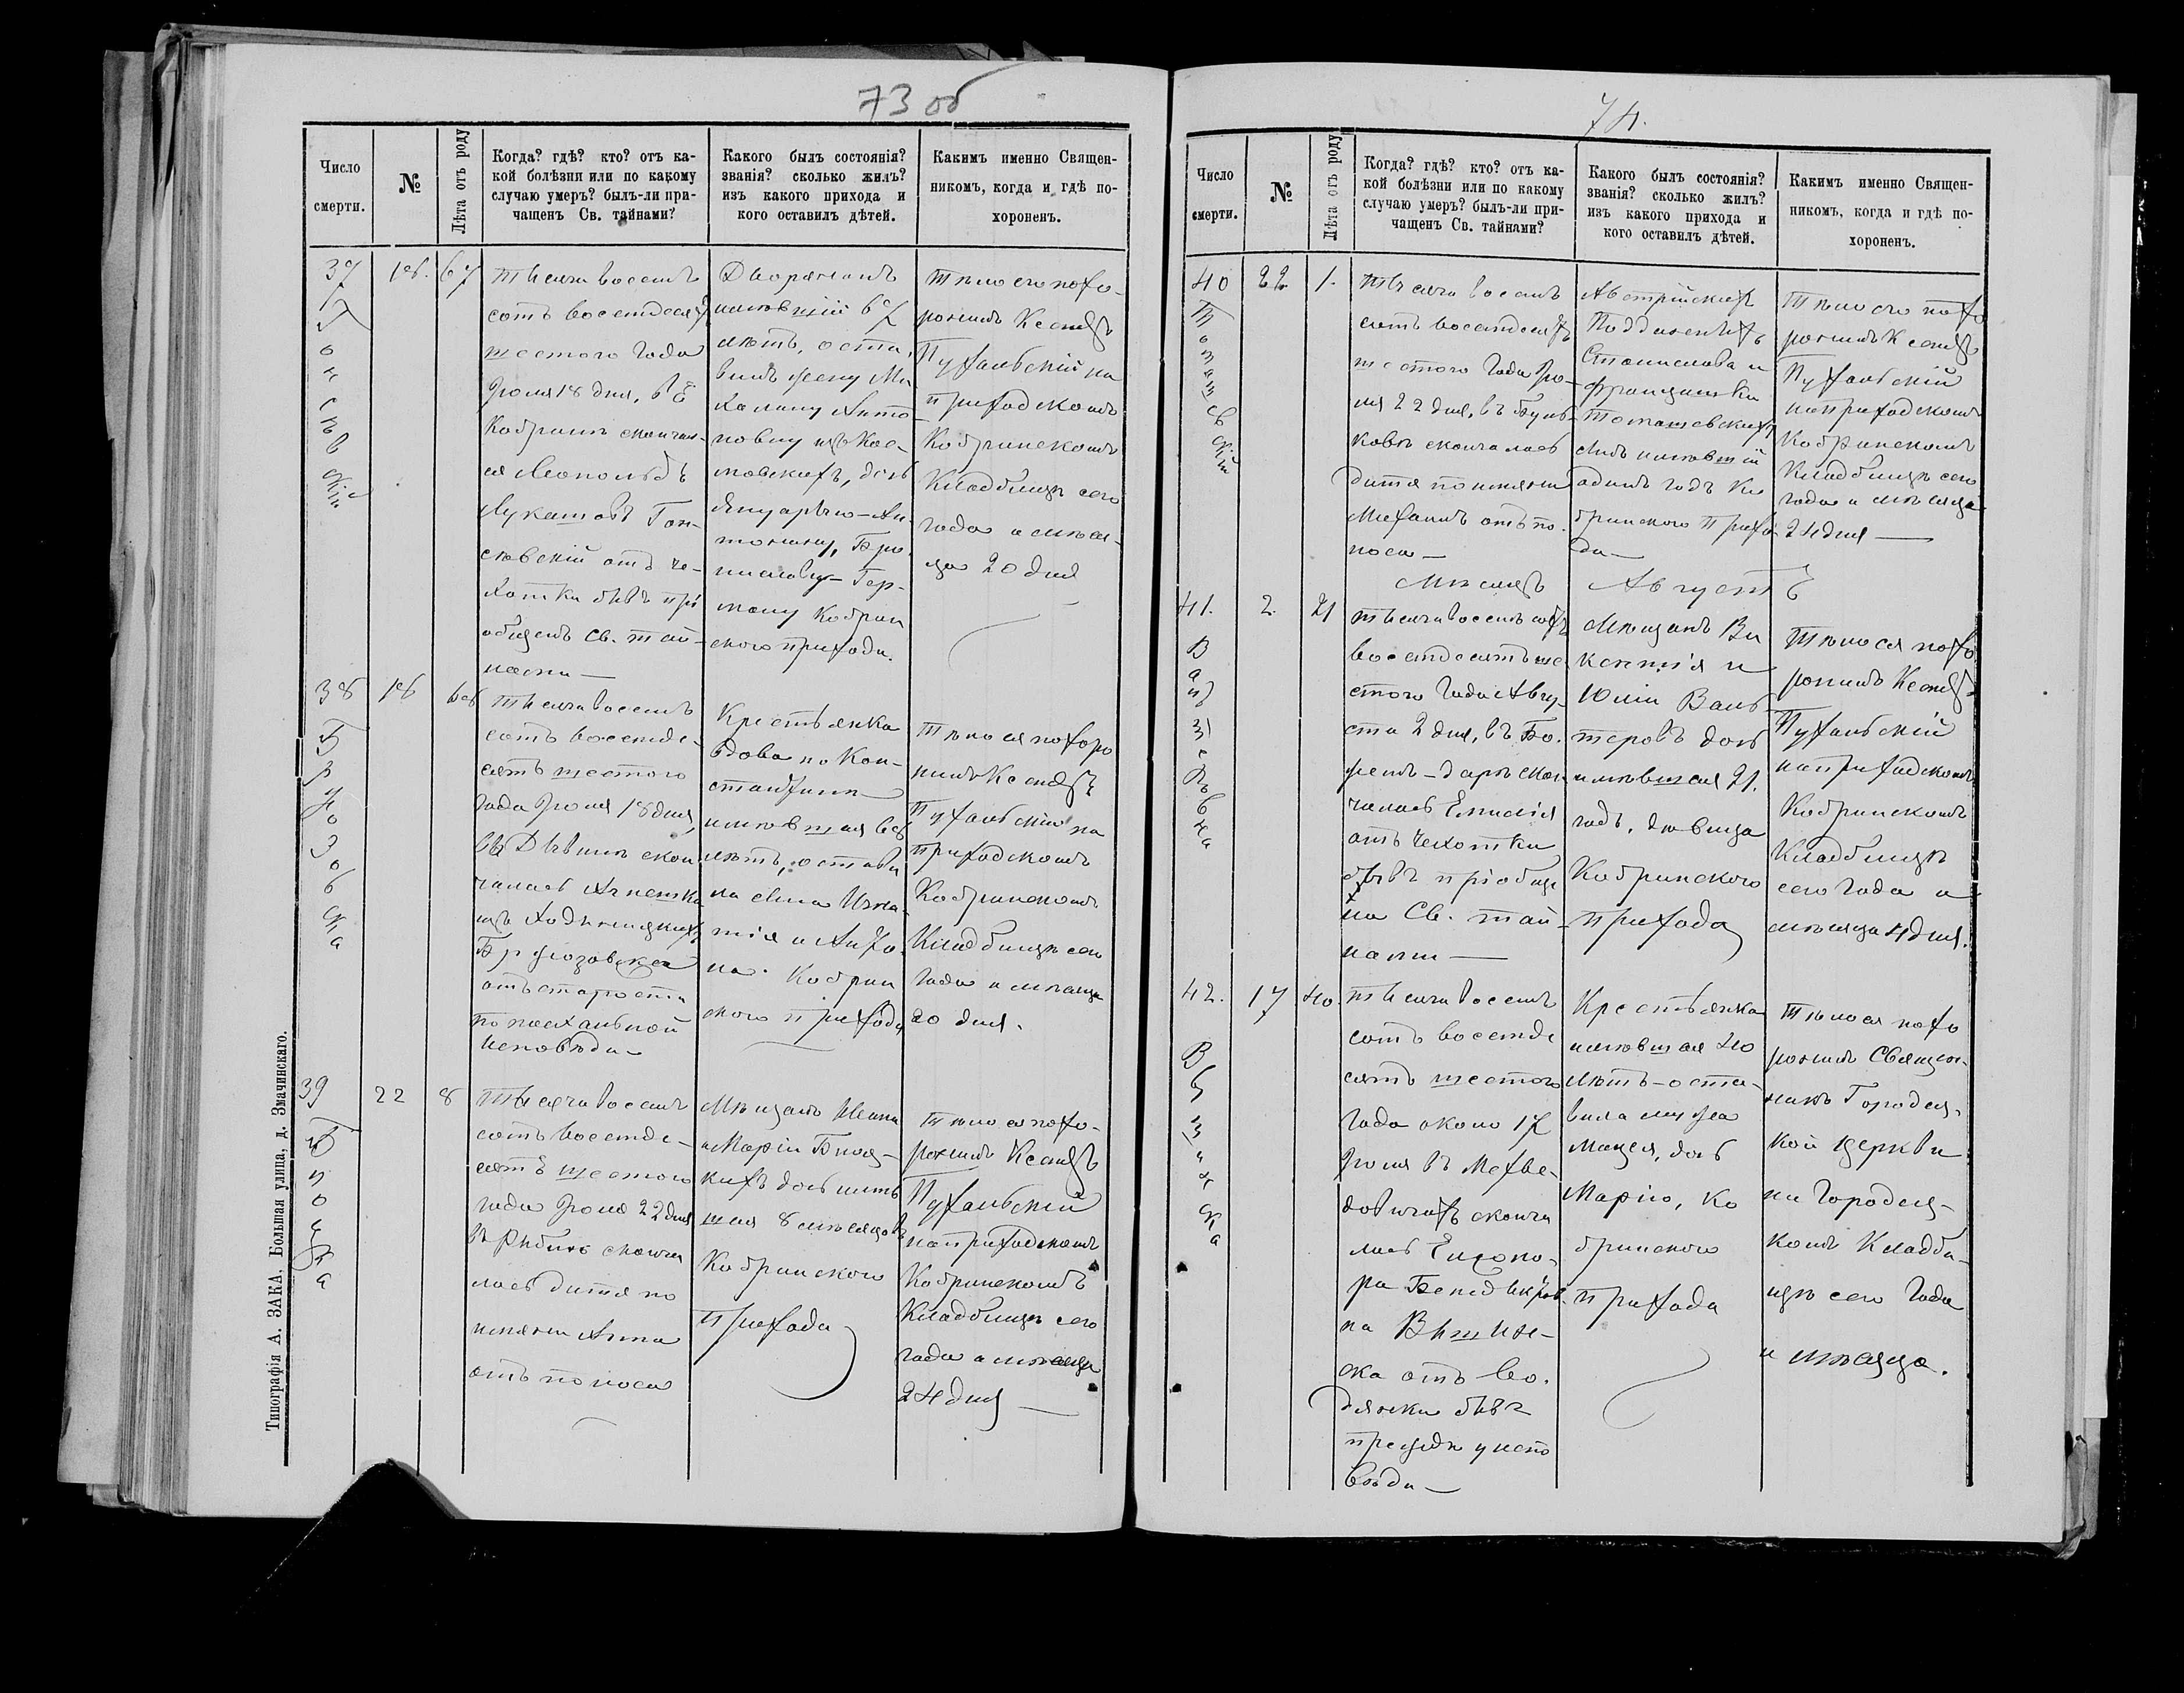 73 об
Число смерти.
№
Лѣта отъ роду
Когда? гдѣ? кто? отъ ка-
кой болѣзни или по какому
случаю умеръ? былъ-ли при-
чащенъ Св. тайнами?
Какого былъ состоянія?
званія? сколько жилъ?
изъ какого прихода и
кого оставилъ дѣтей.
Какимъ именно Священ-
никомъ, когда и гдѣ по-
хороненъ.
37
18.
67
Тысяча восемь
сотъ восемдесятъ
шестого года
Іюля 18 дня, въ г.
Кобринѣ скончал-
ся Леопольдъ
Лукашовъ Гон-
сѣвскій отъ че-
хотки бывъ прі
общенъ Св. тай-
нами —
Дворянинъ
имѣвшій 67
лѣтъ, оста-
вилъ жену Ми
халину Анто
нову изъ Кос-
мовскихъ, дочь
Януарію-Ан-
тонину, Бро-
ниславу-Гер-
мону Кобрин
ского прихода.
Тѣло его похо-
ронилъ Ксендзъ
Пухальскій на
приходскомъ
Кобринскомъ
Кладбищѣ сего
года и мѣся-
ца 20 дня
38
18
68
Тысяча восемь
сотъ восемде-
сятъ шестого
года Іюля 18 дня,
въ Дывинѣ скон
чалась Агнешка
изъ Ходыницкихъ
Брюзовска
отъ старости
по пасхальной
исповѣди —
Крестьянка
вдова по Кон-
стантинѣ
имѣвшая 68
лѣтъ, остави
ла сына Игна-
тія и Антo-
на. Кобрин
ского прихода
Тѣло ея похоро
нилъ Ксендзъ
Пухальскій на
приходскомъ
Кобринскомъ
Кладбищѣ сего
года и мѣсяца
20 дня.
39
22
8
Тысяча восемь
сотъ восемде-
сятъ шестого
года Іюля 22 дня
въ Рыбинѣ сконча
лась дитя по
имени Анна
отъ поноса
Мѣщанъ Ивана
и Маріи Бноц-
кихъ дочь имѣв
шая 8 мѣсяцовъ
Кобринского
прихода
Тѣло ея похо-
ронилъ Ксендзъ
Пухальскій
на приходскомъ
Кобринскомъ
Кладбищѣ сего
года и мѣсяца
24 дня —
Типографія А. ЗАКА, Большая улица, д. Змачинскаго.
74.
Число смерти.
№
Лѣта отъ роду
Когда? гдѣ? кто? отъ ка-
кой болѣзни или по какому
случаю умеръ? былъ-ли при-
чащенъ Св. тайнами?
Какого былъ состоянія?
званія? сколько жилъ?
изъ какого прихода и
кого оставилъ дѣтей.
Какимъ именно Священ-
никомъ, когда и гдѣ по-
хороненъ.
40
Томашевскій
22
1.
Тысяча восемь
сотъ восемдесятъ
шестого года Ію-
ля 22 дня, въ Буль-
ковѣ скончалось
дитя по имени
Михаилъ отъ по-
носа —
Австрійскихъ
Подданныхъ
Станислава и
Францишки
Томашевскихъ
сынъ имѣвшій
одинъ годъ Ко
бринского прихо
да —
Тѣло его похо
ронилъ Ксендзъ
Пухальскій
на приходскомъ
Кобринскомъ
Кладбищѣ сего
года и мѣсяца
24 дня —
Мѣсяцъ Августъ
41.
2.
21
Тысяча восемь сотъ
восемдесятъ ше-
стого года Авгу-
ста 2 дня, въ Бо-
жемъ-дарѣ скон
чалась Емилія
отъ чехотки
бывъ пріобще
на Св. тай-
нами —
Мѣщанъ Ви
кентія и
Юліи Валь-
теровъ дочь
имѣвшая 21.
годъ, дѣвица
Кобринского
прихода
Тѣло ея похо
ронилъ Ксендзъ
Пухальскій
на приходскомъ
Кобринскомъ
Кладбищѣ
сего года и
мѣсяца 4 дня.
42.
17
40.
Тысяча восемь
сотъ восемде
сятъ шестого
года около 17
Іюля въ Мехве-
довичахъ сконча
лась
на
ска отъ во-
дянки бывъ
прежде у испо
вѣди —
Крестьянка
имѣвшая 40
лѣтъ-оста-
вила мужа
дочь
Марію, Ко
бринского
прихода
Тѣло ея похо
ронилъ Священ-
никъ Городец-
кой церкви
на Городец-
комъ Кладби-
щѣ сего года
и мѣсяца.